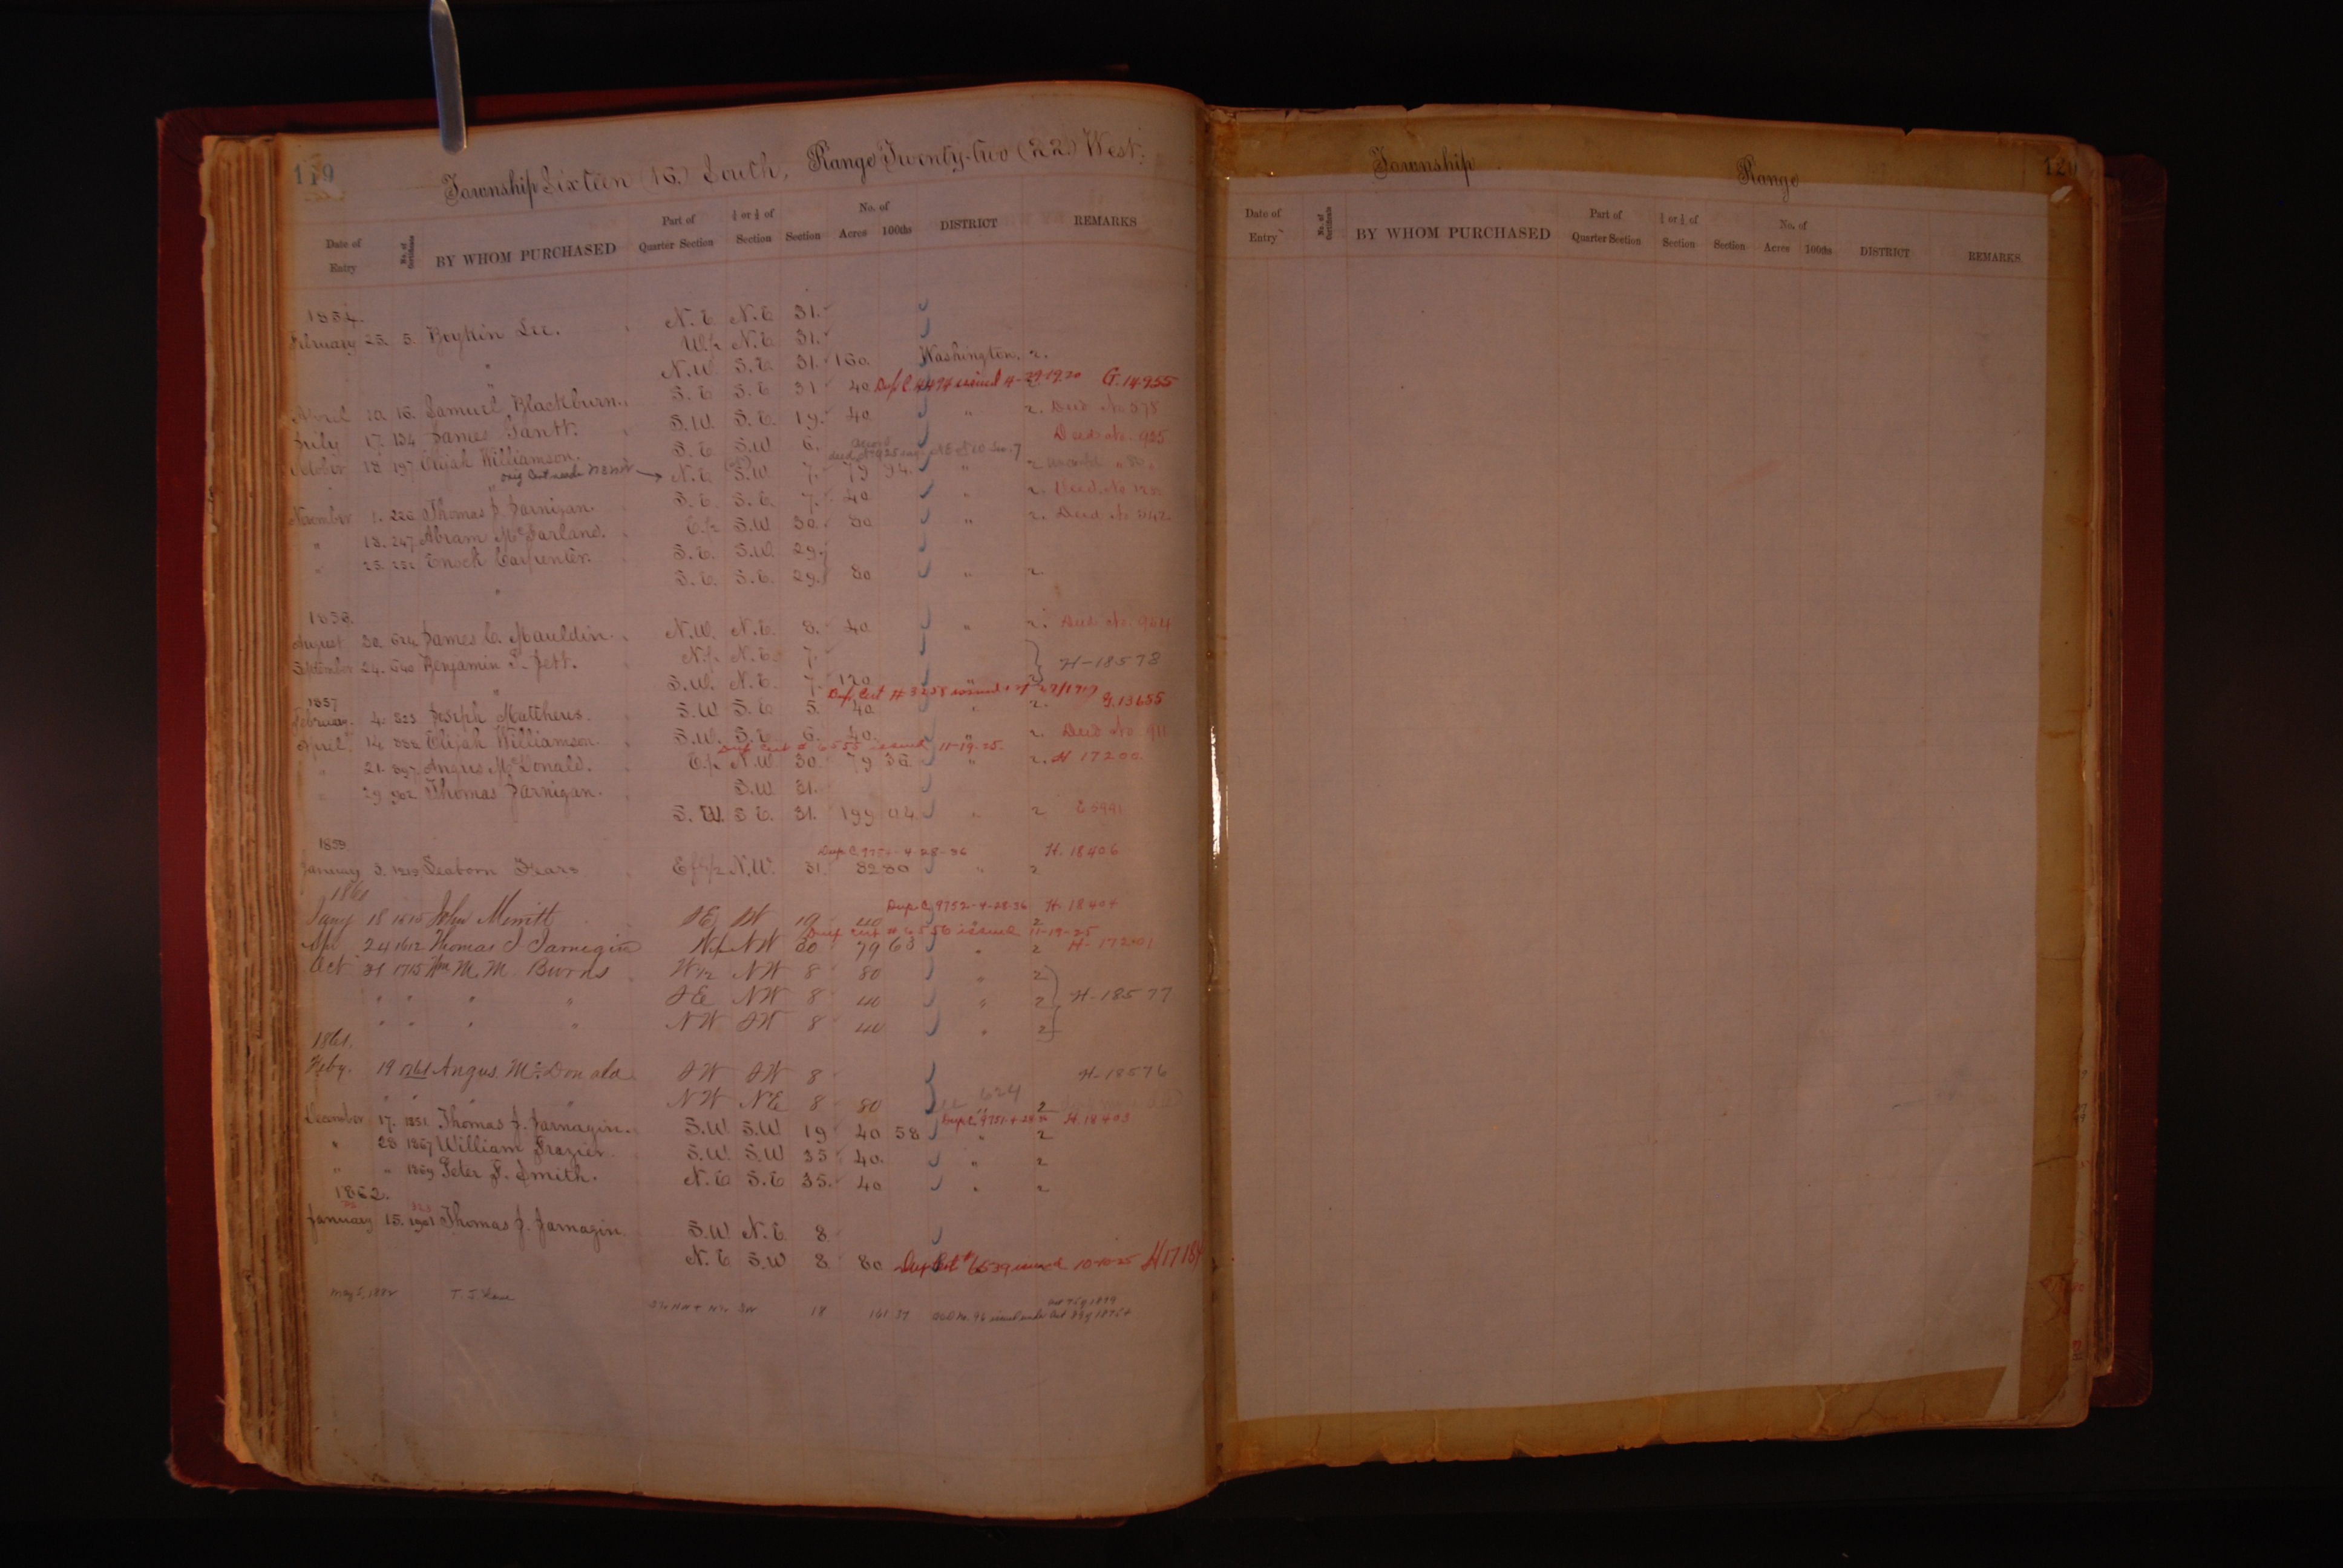 119
Township Sixteen (16.) South, Range Twenty-two (22.) West.
Date of Entry No. of Certificate BY WHOM PURCHASED Part of Quarter Section ¼ or ½ of Section Section No. of Acres 100ths DISTRICT REMARKS
1854.
February 25. 5. Boykin Lee. N.E N.E 31.
W.½ N.E 31.
" N.W. S.E. 31. 160. Washington. 2.
Dup C 4494 issued 4-29-1920 G. 14955
" S.E S.E 31 40
April 10. 16. Samuel Blackburn. S.W. S.E. 19. 40. " 2. Deed No 378
July 17. 134 James Gantt. S.E S.W 6. Deed No. 925
October 18 197 Elijah Williamson. N.E. S.W 7. 79 94. " 2
orig Cert reads NENW
" S.E. S.E. 7. 40 " 2. Deed No
November 1. 226 Thomas J. Jarnigan. E.½ S.W 30. 80 " 2. Deed No
" 18. 247 Abram McFarland. S.E. S.W. 29.
" 25. 252 Enoch Carpenter. S.E. S.E. 29. 80 " 2.
"
1856.
August 30. 624 James C. Mauldin. N.W. N.E. 8. 40 " 2. Deed No. 964
September 24. 640 Benjamin F. Jett. N.½ N.E. 7.
" S.W. N.E. 7. 120 " 2 H-18578
1857
Dup Cert # 3258 issued 27/1917 G.13655
February. 4. 823 Joseph Matthews. S.W S.E 5. 40 " 2.
April. 14. 882 Elijah Williamson. S.W. S.E 6. 40. " 2. Deed No 911
Dup Cert # 6555 issued 11-19-25.
" 21. 897 Angus McDonald. E.½ N.W 30. 79 36 " 2. H 17200
" 29 902 Thomas Jarnigan. S.W 31.
S.W. S E. 31. 199 04 " 2 E 5991
1859
Dup C 9750-4-28-36 H. 18406
January 3. 1219 Seaborn Fears E f ½ N.W. 31 82 80 " 2
1861
Dup C 9752-4-28-36 H. 18404
Jany 18 1515 John Merritt SE SW 19 40 2
Dup cert # 6556 issued 11-19-25
Apl 24 1612 Thomas J Jarnegin W½ NW 30 79 63 " 2 H-17201
Oct 31 1715 Wm M. M. Burns W½ NW 8 80 " 2
" " " " SE NW 8 40 " 2 H-18577
" " " " NW SW 8 40 " 2
1861.
Feby. 19 1761 Angus. McDonald SW SW 8 H-18576
" " " " NW NE 8 80 624 " 2
Dup C 9751-4-28-36 H. 18403
December 17. 1851. Thomas J. Jarnagin. S.W S.W 19 40 58 " 2
" 28 1867 William Frazier. S.W. S.W 35 40. " 2
" " 1869 Peter F. Smith. N.E S.E 35. 40 " 2
1862.
January 15. 1901 Thomas J. Jarnagin S.W N.E 8
N.E S.W 8 80 Dup Cert # 6539 issued 10-10-25 H 1718
May 5, 1882 T. J. S½ NW & N½ SW 18 161 37 No. 96 issued under Act
120
Township Range
Date of Entry No. of Certificate BY WHOM PURCHASED Part of Quarter Section ¼ or ½ of Section Section No. of Acres 100ths DISTRICT REMARKS.